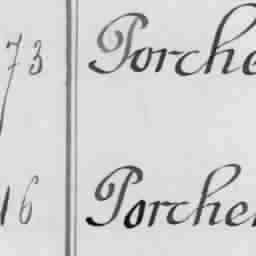 73 Porche
16 Porche